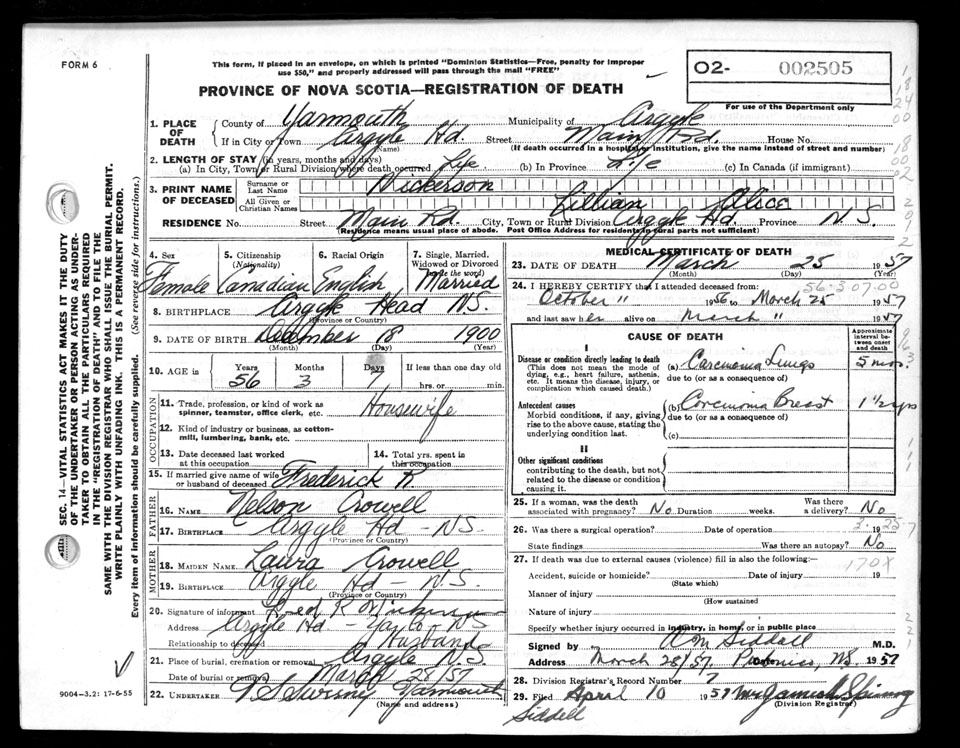 FORM 6
This form, if placed in an envelope, on which is printed "Dominion Statistics—Free, penalty for improper
use $50," and properly addressed will pass through the mail "FREE"
O2- 002505
PROVINCE OF NOVA SCOTIA—REGISTRATION OF DEATH
For use of the Department only
1. PLACE OF DEATH
County of Yarmouth Municipality of Argyle
If in City or Town Argyle Hd. Street Main Rd. House No.
(Name) (If death occurred in a hospital or institution, give the name instead of street and number)
2. LENGTH OF STAY (in years, months and days)
(a) In City, Town or Rural Division where death occurred Life (b) In Province Life (c) In Canada (if immigrant)
3. PRINT NAME OF DECEASED
Surname or Last Name Nickerson
All Given or Christian Names Lillian Alice
RESIDENCE No. Street Main Rd. City, Town or Rural Division Argyle Hd. Province N.S.
(Residence means usual place of abode. Post Office Address for residents in rural parts not sufficient)
4. Sex Female
5. Citizenship (Nationality) Canadian
6. Racial Origin English
7. Single, Married, Widowed or Divorced (write the word) Married
8. BIRTHPLACE Argyle Head NS.
(Province or Country)
9. DATE OF BIRTH December 18 1900
(Month) (Day) (Year)
10. AGE in Years 56 Months 3 Days 7 If less than one day old
hrs. or min.
OCCUPATION
11. Trade, profession, or kind of work as spinner, teamster, office clerk, etc. Housewife
12. Kind of industry or business, as cotton-mill, lumbering, bank, etc.
13. Date deceased last worked at this occupation
14. Total yrs. spent in this occupation
15. If married give name of wife or husband of deceased Frederick K
FATHER
16. NAME Nelson Crowell
17. BIRTHPLACE Argyle Hd - NS-
(Province or Country)
MOTHER
18. MAIDEN NAME Laura Crowell
19. BIRTHPLACE Argyle Hd - N.S.
(Province or Country)
20. Signature of informant Fred K Nickerson
Address Argyle Hd - Yar. Co - NS
Relationship to deceased Husband
21. Place of burial, cremation or removal Argyle N.S.
Date of burial or removal March 28/57
22. UNDERTAKER Sweeny Yarmouth
(Name and address)
MEDICAL CERTIFICATE OF DEATH
23. DATE OF DEATH March 25 1957
(Month) (Day) (Year)
24. I HEREBY CERTIFY that I attended deceased from:
56-307.00
October " 1956 to March 25 1957
and last saw her alive on March " 1957
CAUSE OF DEATH
Approximate interval between onset and death
I
Disease or condition directly leading to death
(This does not mean the mode of dying, e.g., heart failure, asthenia, etc. It means the disease, injury, or complication which caused death.)
(a) Carcinoma Lungs 5 mos.
due to (or as a consequence of)
Antecedent causes
Morbid conditions, if any, giving rise to the above cause, stating the underlying condition last.
(b) Carcinoma Breast 1 1/2 yrs
due to (or as a consequence of)
(c)
II
Other significant conditions
contributing to the death, but not related to the disease or condition causing it.
25. If a woman, was the death associated with pregnancy? No Duration weeks. Was there a delivery? No
26. Was there a surgical operation? Date of operation 19
State findings Was there an autopsy? No
27. If death was due to external causes (violence) fill in also the following:—
170X
Accident, suicide or homicide? Date of injury 19
(State which)
Manner of injury
(How sustained)
Nature of injury
Specify whether injury occurred in industry, in home, or in public place
Signed by Siddall M.D.
Address March 28/57. Pubnico, NS. 1957
28. Division Registrar's Record Number 7
29. Filed April 10 1957 Mrs Jamesh Spinney
(Division Registrar)
Siddell
SEC. 14—VITAL STATISTICS ACT MAKES IT THE DUTY
OF THE UNDERTAKER OR PERSON ACTING AS UNDER-
TAKER TO OBTAIN ALL THE PARTICULARS REQUIRED
IN THE "REGISTRATION OF DEATH" AND TO FILE THE
SAME WITH THE DIVISION REGISTRAR WHO SHALL ISSUE THE BURIAL PERMIT.
WRITE PLAINLY WITH UNFADING INK. THIS IS A PERMANENT RECORD.
Every item of information should be carefully supplied. (See reverse side for instructions.)
9004-3.2: 17-6-55